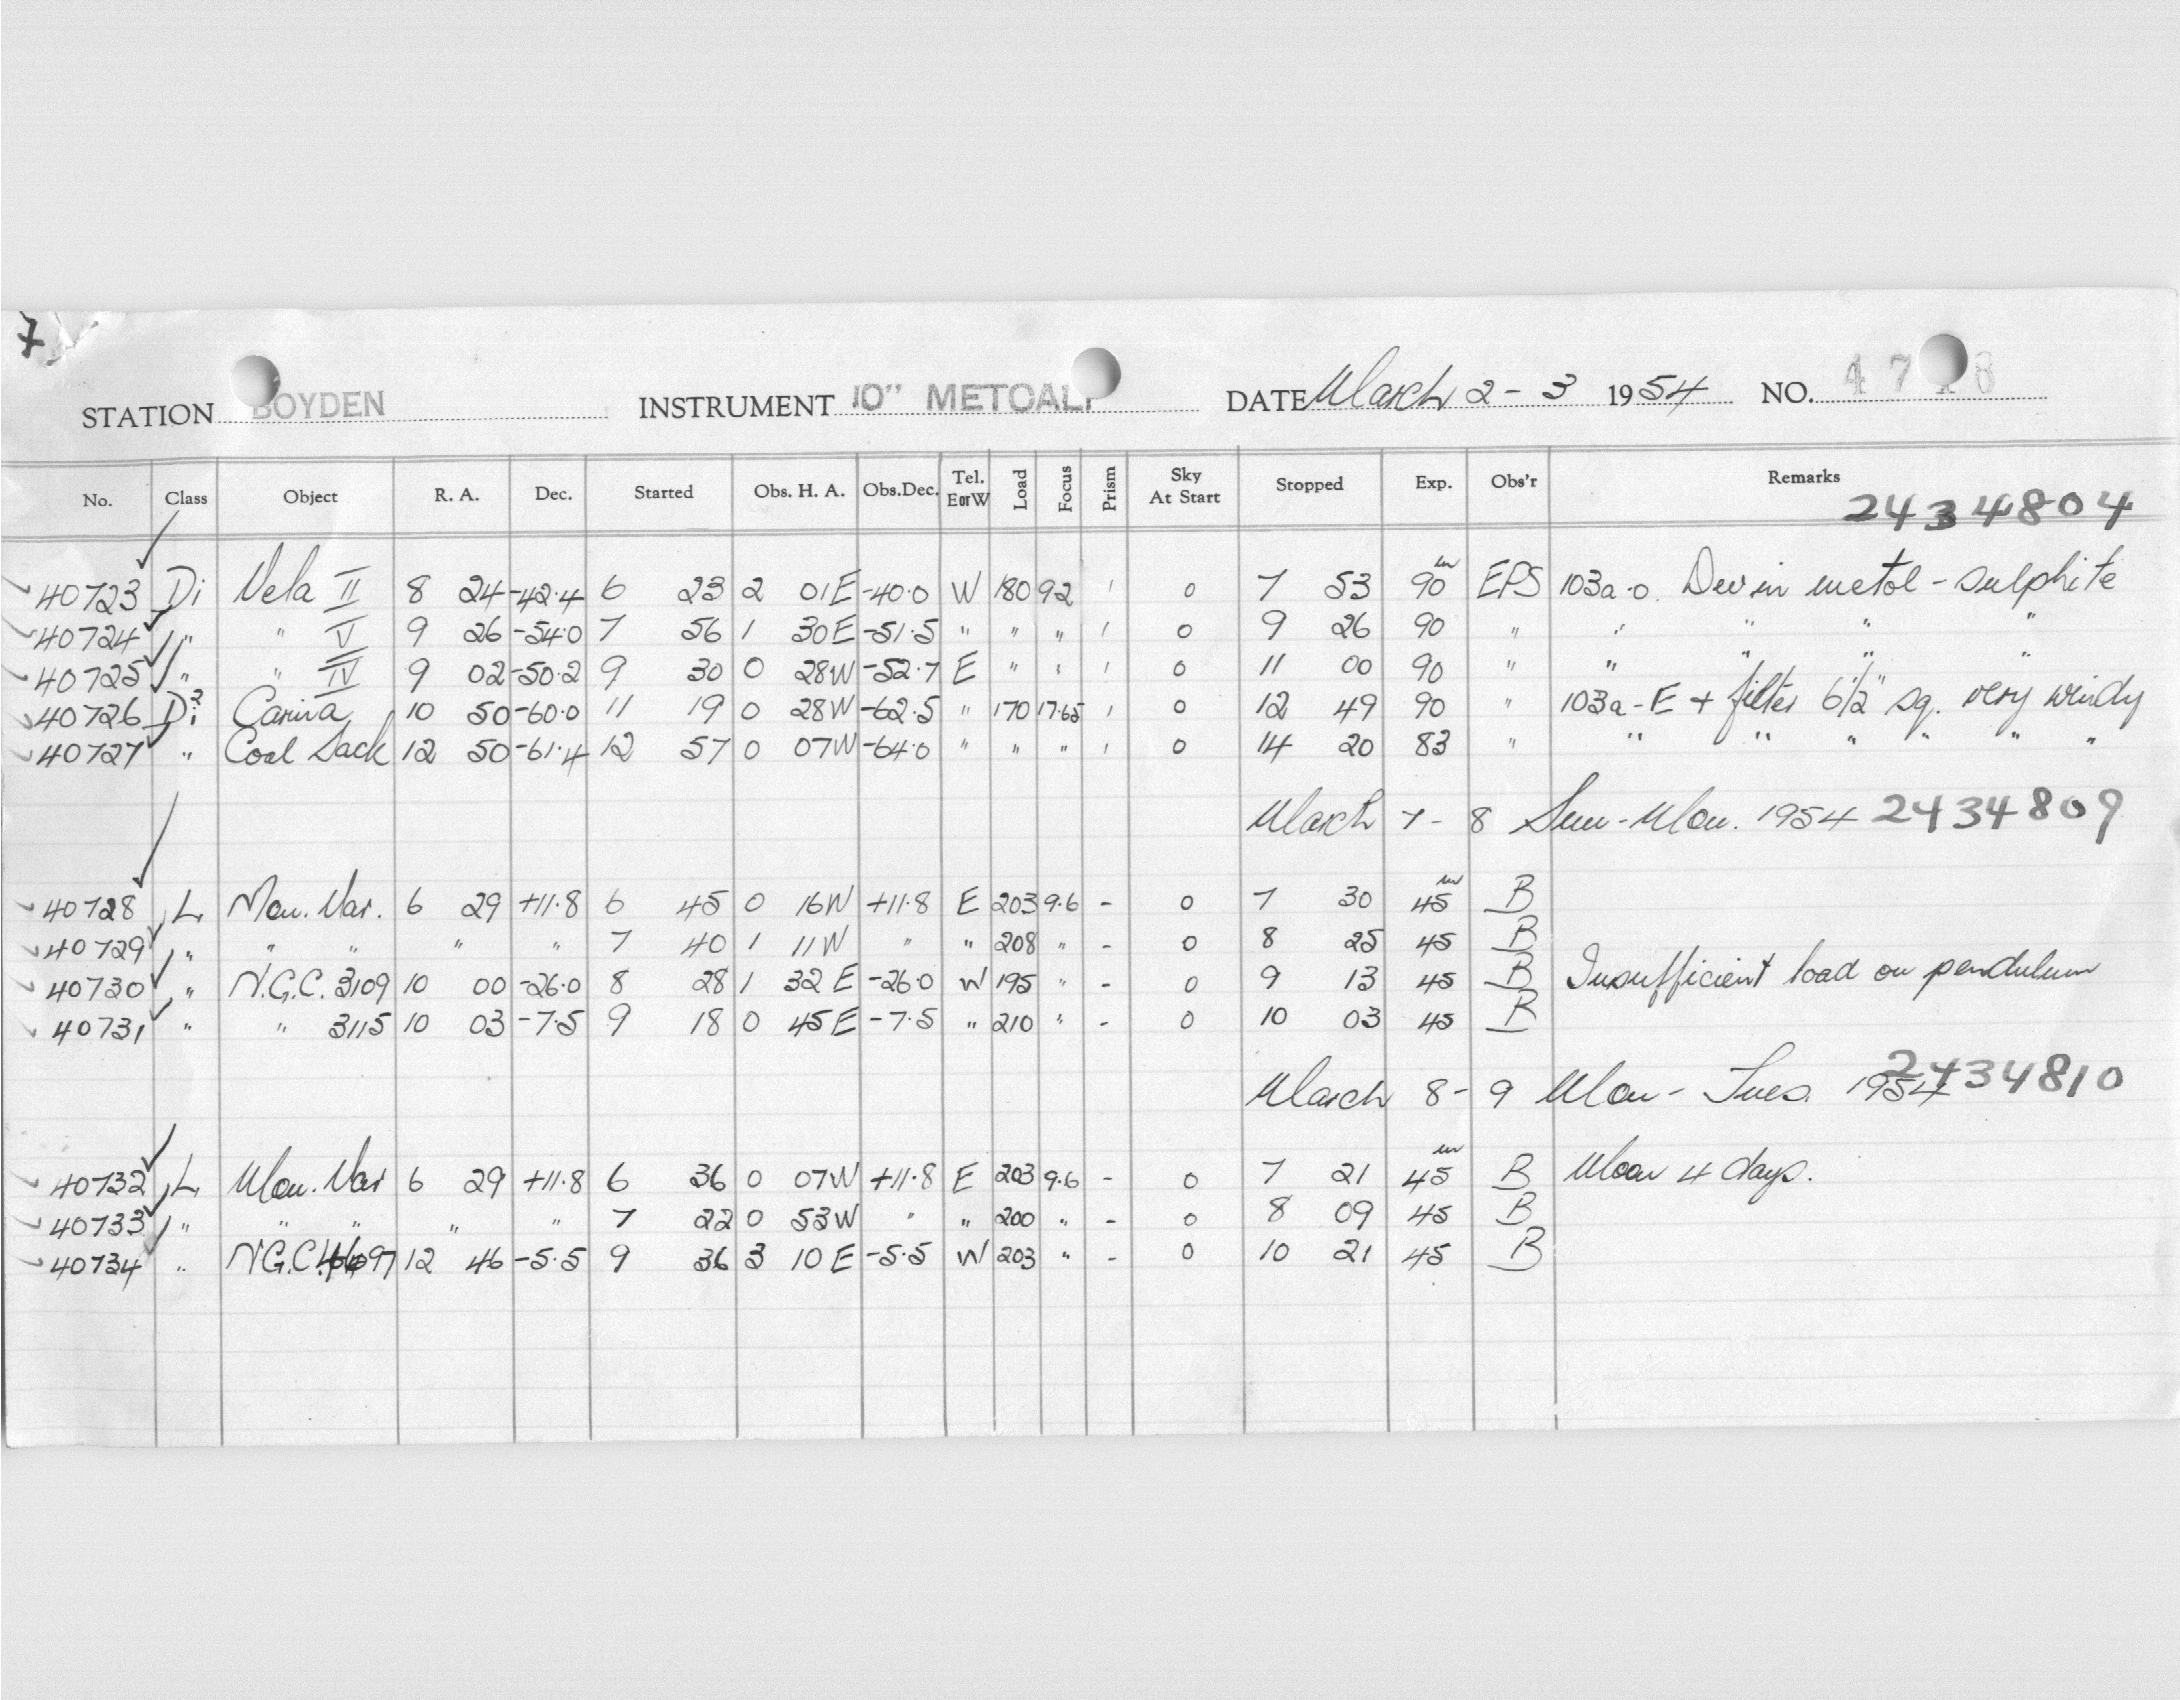 7
STATION BOYDEN INSTRUMENT 10" METCALF DATE March 2 - 3 1954 NO.
No. Class Object R. A. Dec. Started Obs. H. A. Obs.Dec. Tel. EorW Load Focus Prism Sky At Start Stopped Exp. Obs'r Remarks
2434804
40723 Di Vela II 8 24 -42.4 6 23 2 01E -40.0 W 180 92 1 0 7 53 90m EPS 103a-o. Dev in metol - sulphite
40724 " " V 9 26 -54.0 7 56 1 30E -51.5 " " " 1 0 9 26 90 " " " " "
40725 " " IV 9 02 -50.2 9 30 0 28W -52.7 E " " 1 0 11 00 90 " " " " "
40726 Di² Carina 10 50 -60.0 11 19 0 28W -62.5 " 170 17.65 1 0 12 49 90 " 103a-E + filter 6½" sq. very windy
40727 " Coal Sack 12 50 -61.4 12 57 0 07W -64.0 " " " 1 0 14 20 83 " " " " " " "
March 7 - 8 Sun - Mon. 1954 2434809
40728 L Mon. Var. 6 29 +11.8 6 45 0 16W +11.8 E 203 9.6 - 0 7 30 45m B
40729 " " " " " 7 40 1 11W " " 208 " - 0 8 25 45 B
40730 " N.G.C. 3109 10 00 -26.0 8 28 1 32E -26.0 W 195 " - 0 9 13 45 B Insufficient load on pendulum
40731 " " 3115 10 03 -7.5 9 18 0 45E -7.5 " 210 " - 0 10 03 45 B
March 8 - 9 Mon - Tues. 1954 2434810
40732 L Mon. Var 6 29 +11.8 6 36 0 07W +11.8 E 203 9.6 - 0 7 21 45m B Moon 4 days.
40733 " " " " " 7 22 0 53W " " 200 " - 0 8 09 45 B
40734 " N.G.C. 4697 12 46 -5.5 9 36 3 10E -5.5 W 203 " - 0 10 21 45 B